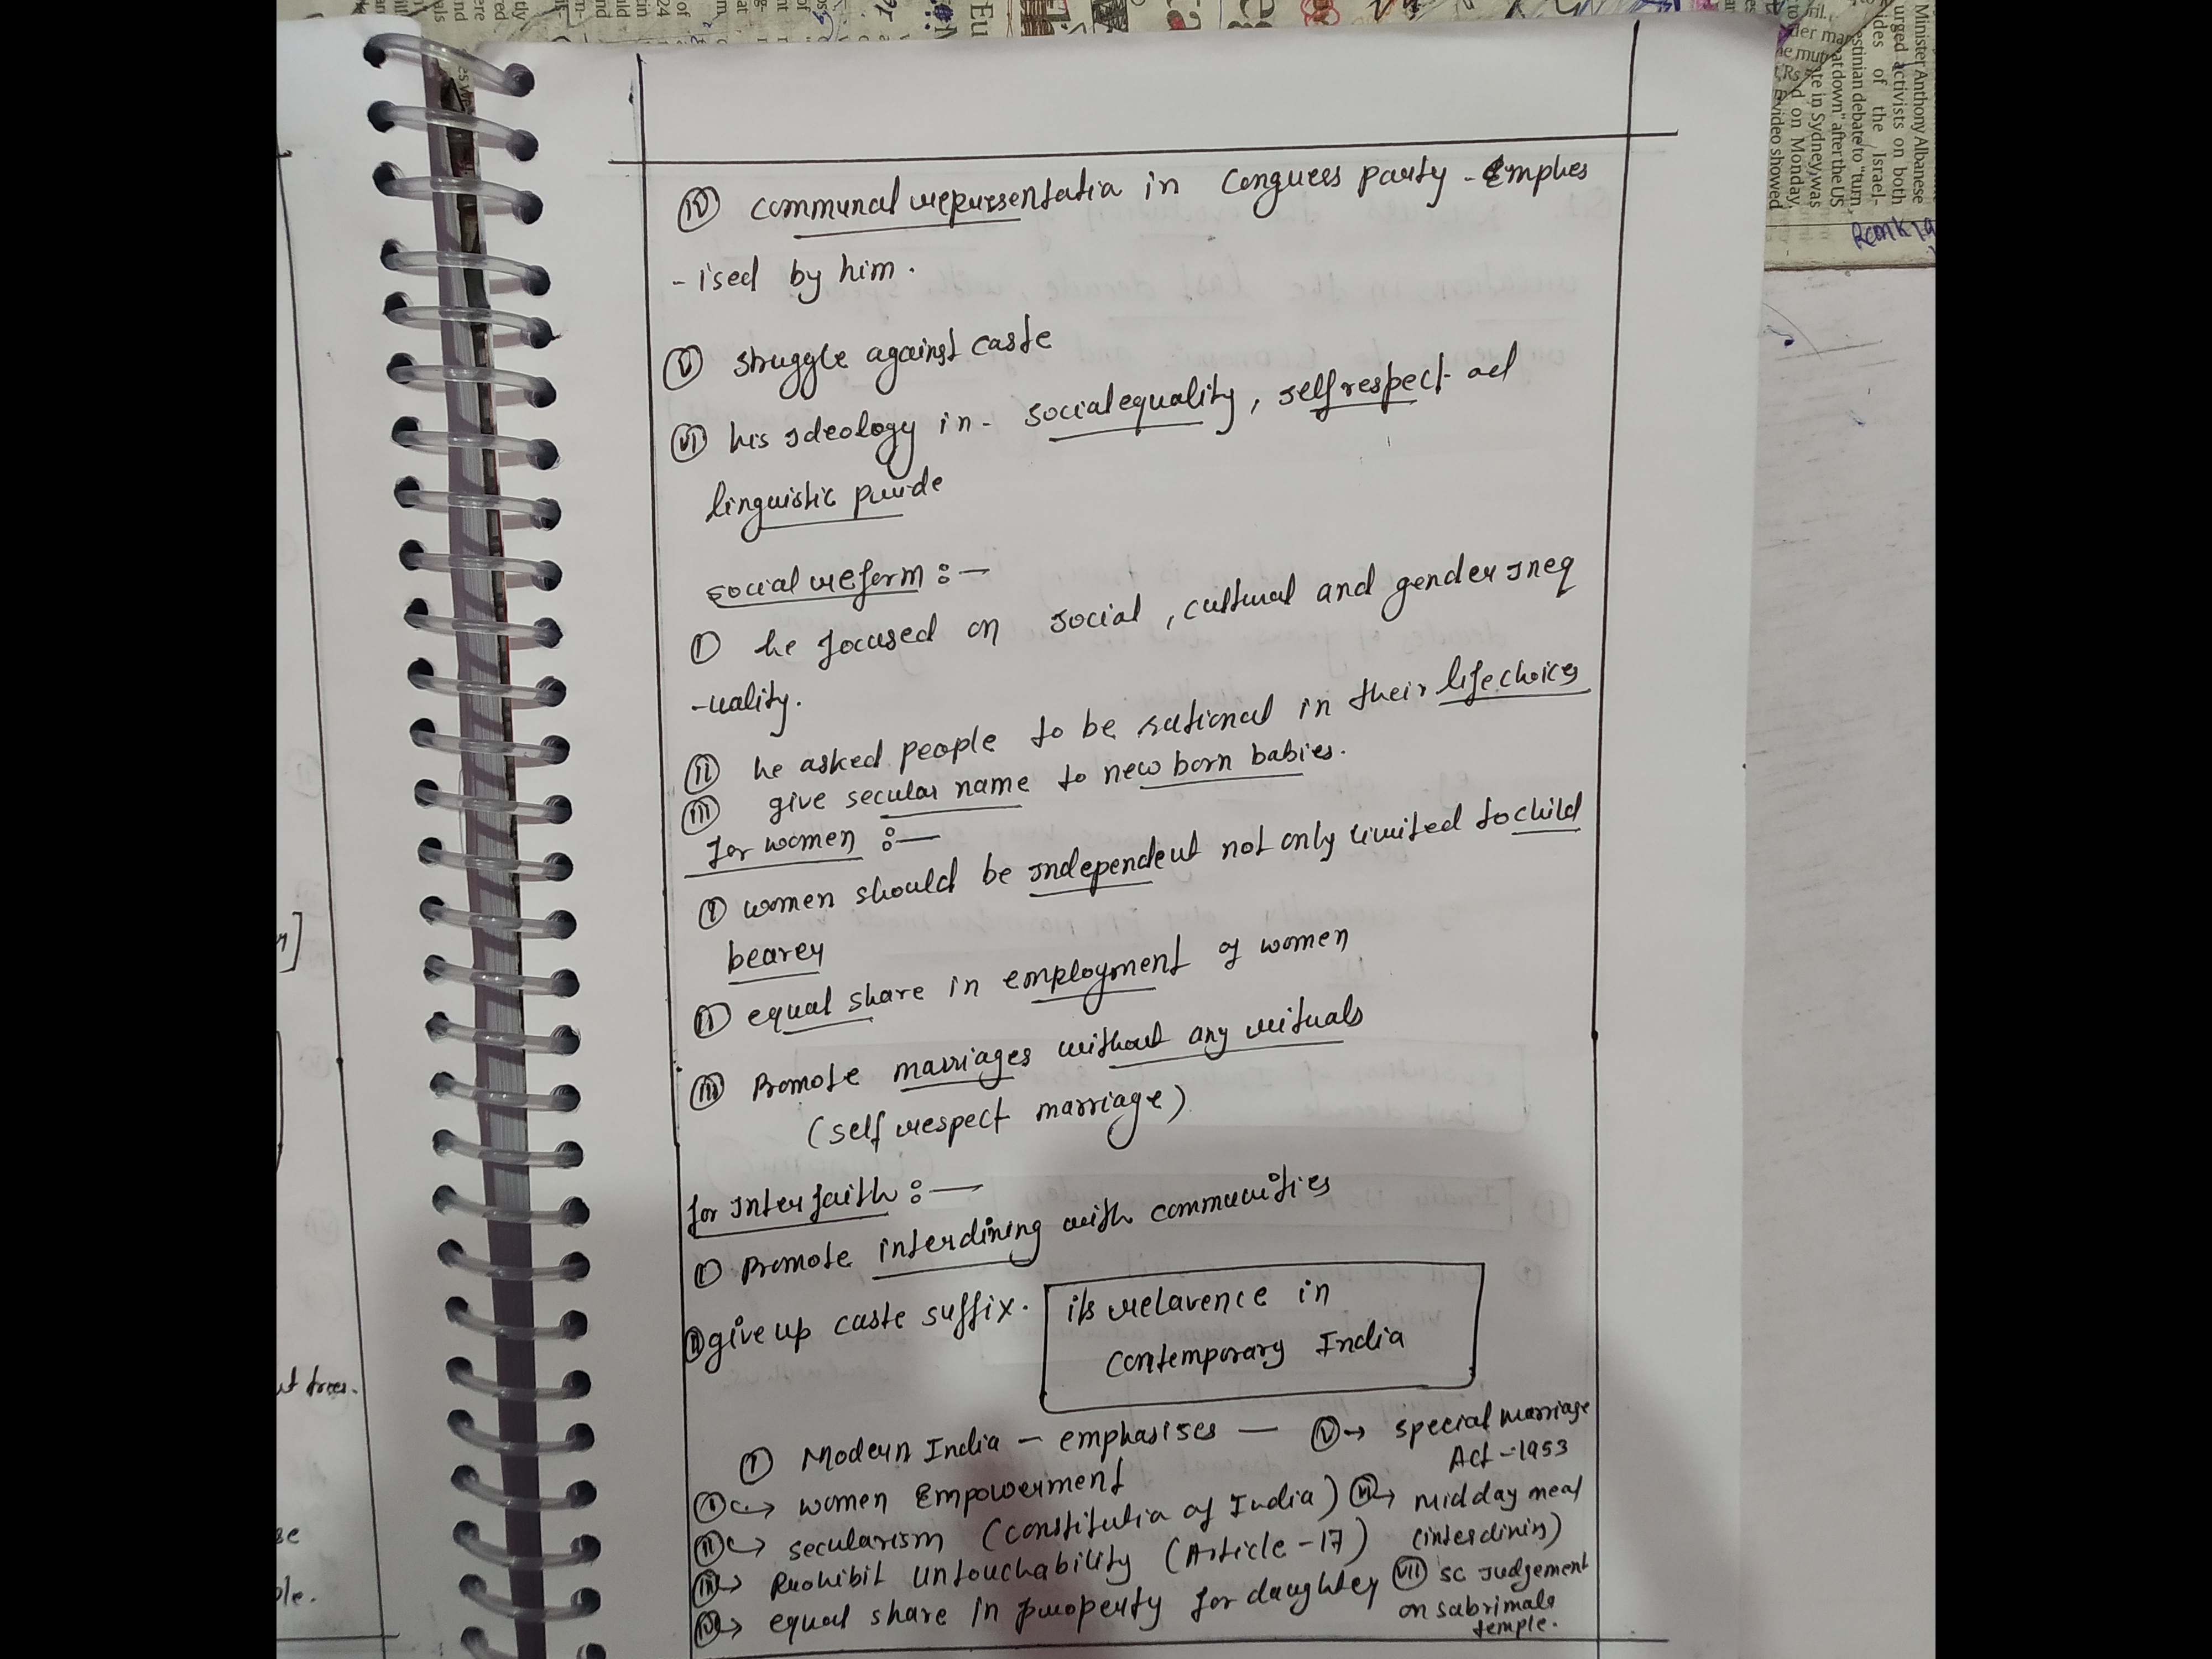 (iv) communal representatia in Congress party - Emphes
- ised by him.
(v) struggle against caste
(vi) his Ideology in - social equality, self respect ad
linguistic pride
social reform :-
(I) he focused on social, cultural and gender Ineq
-uality.
(II) he asked people to be rational in their life choices
(III) give secular name to new born babies.
for women :-
(I) women should be Independent not only limited to child
bearer
(II) equal share in employment of women
(III) Promote marriages without any rituals
(self respect marriage)
for Interfaith :-
(I) Promote interdining with communities
(II) give up caste suffix.
its relavence in
contemporary India
(I) Modern India - emphasises -
(I) → women Empowerment
(II) → secularism (constitutia of India)
(III) → Prohibit untouchability (Article - 17)
(IV) → equal share in property for daughter
(V) → special marriage
Act - 1953
(VI) → mid day meal
(interdining)
(VII) SC Judgement
on sabrimala
temple.
Minister Anthony Albanese
urged activists on both
sides of the Israel-
estinian debate to "turn
eat down" after the US
ate in Sydney was
d on Monday.
video showed
ut trees.
ple.